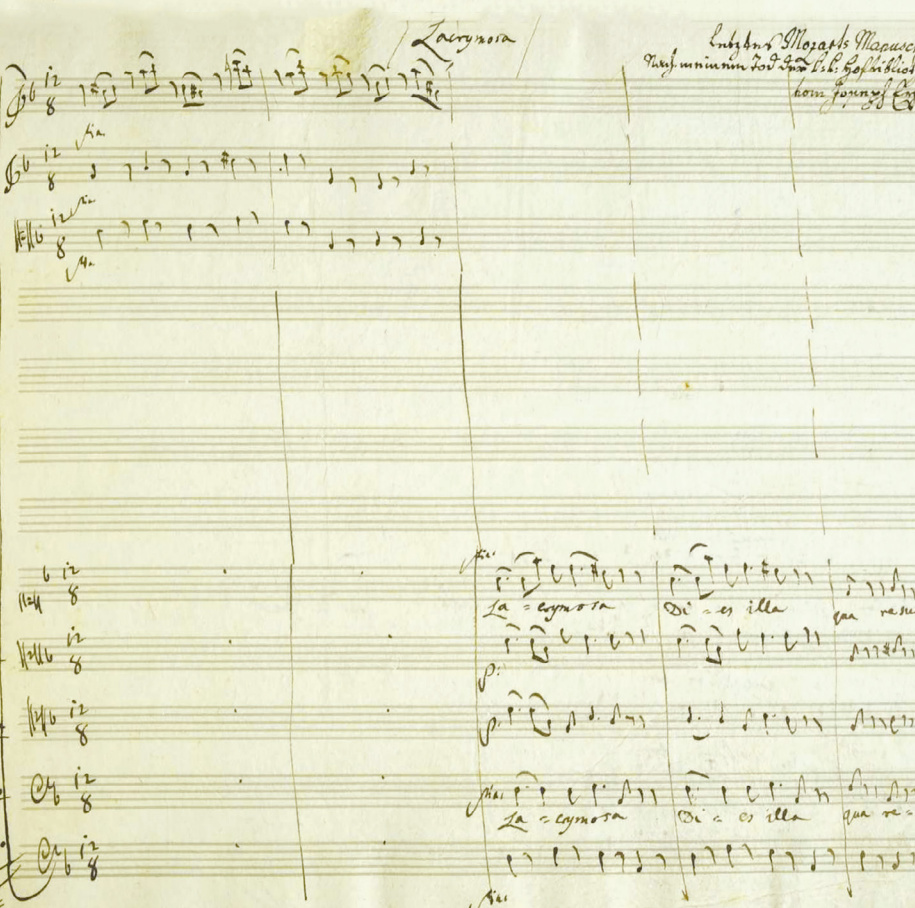 Lacrymosa
letztes Mozarts Manusc
Nach meinem Tod der k: k: Hofbiblio
vom Joseph
12
8
12
8
12
8
12
8
La = crymosa Di = es illa qua resu
12
8
p:
12
8
p:
12
8
La = crymosa Di = es illa qua re =
12
8